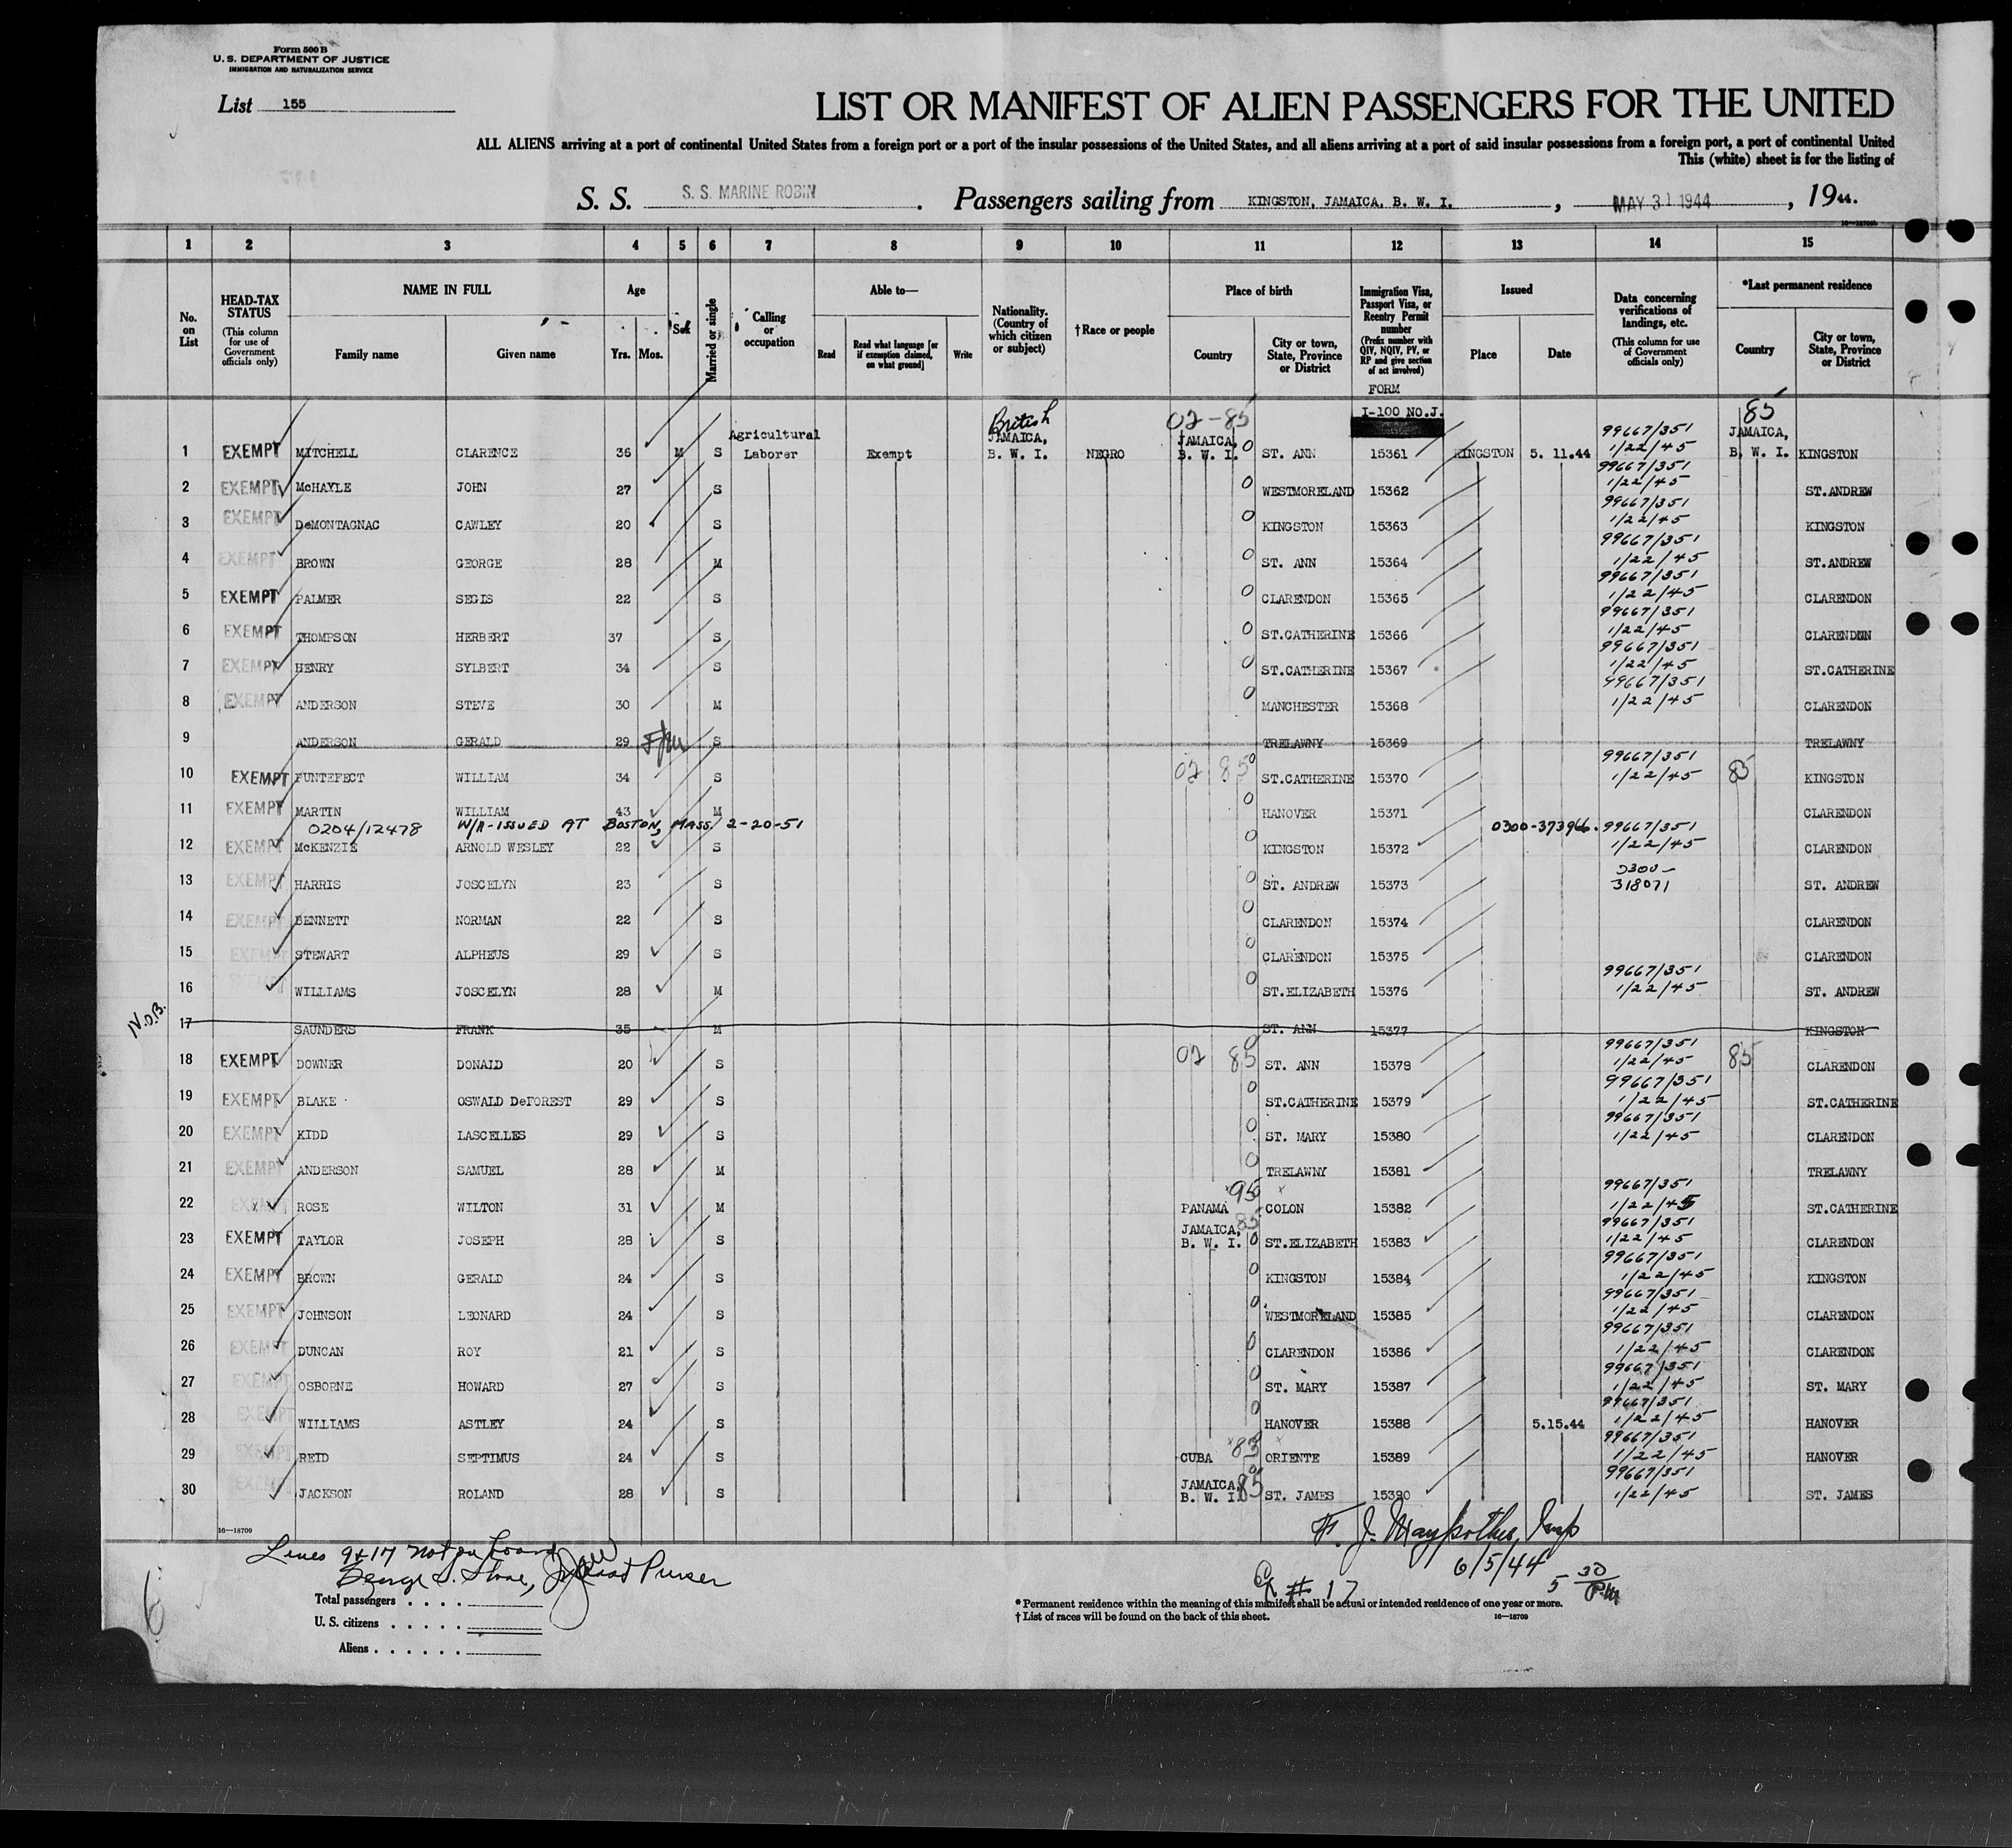 Form 500 B
U. S. DEPARTMENT OF JUSTICE
IMMIGRATION AND NATURALIZATION SERVICE
List 155
LIST OR MANIFEST OF ALIEN PASSENGERS FOR THE UNITED
ALL ALIENS arriving at a port of continental United States from a foreign port or a port of the insular possessions of the United States, and all aliens arriving at a port of said insular possessions from a foreign port, a port of continental United
This (white) sheet is for the listing of
S. S. S. S. MARINE ROBIN . Passengers sailing from KINGSTON, JAMAICA, B. W. I. , MAY 31 1944 , 1944.
1 2 3 4 5 6 7 8 9 10 11 12 13 14 15
No. on List
HEAD-TAX STATUS (This column for use of Government officials only)
NAME IN FULL Family name Given name
Age Yrs. Mos.
Sex
Married or single
Calling or occupation
Able to— Read Read what language [or if exemption claimed, on what ground] Write
Nationality. (Country of which citizen or subject)
†Race or people
Place of birth Country City or town, State, Province or District
Immigration Visa, Passport Visa, or Reentry Permit number (Prefix number with QIV, NQIV, PV, or RP and give section of act involved)
Issued Place Date
Data concerning verifications of landings, etc. (This column for use of Government officials only)
*Last permanent residence Country City or town, State, Province or District
FORM
British 02-85 I-100 NO.J. 85
1 EXEMPT MITCHELL CLARENCE 36 M S Agricultural Laborer Exempt JAMAICA, B. W. I. NEGRO JAMAICA, B. W. I. 0 ST. ANN 15361 KINGSTON 5. 11.44 99667/351 1/22/45 JAMAICA, B. W. I. KINGSTON
2 EXEMPT McHAYLE JOHN 27 S 0 WESTMORELAND 15362 99667/351 1/22/45 ST.ANDREW
3 EXEMPT DeMONTAGNAC CAWLEY 20 S 0 KINGSTON 15363 99667/351 1/22/45 KINGSTON
4 EXEMPT BROWN GEORGE 28 M 0 ST. ANN 15364 99667/351 1/22/45 ST.ANDREW
5 EXEMPT PALMER SEGIS 22 S 0 CLARENDON 15365 99667/351 1/22/45 CLARENDON
6 EXEMPT THOMPSON HERBERT 37 S 0 ST.CATHERINE 15366 99667/351 1/22/45 CLARENDON
7 EXEMPT HENRY SYLBERT 34 S 0 ST.CATHERINE 15367 99667/351 1/22/45 ST.CATHERINE
8 EXEMPT ANDERSON STEVE 30 M 0 MANCHESTER 15368 99667/351 1/22/45 CLARENDON
9 ANDERSON GERALD 29 S TRELAWNY 15369 TRELAWNY
10 EXEMPT PUNTEFECT WILLIAM 34 S 02 85 0 ST.CATHERINE 15370 99667/351 1/22/45 85 KINGSTON
11 EXEMPT MARTIN WILLIAM 43 M 0 HANOVER 15371 CLARENDON
0204/12478 W/A-ISSUED AT BOSTON, MASS. 2-20-51 0300-373966.
12 EXEMPT McKENZIE ARNOLD WESLEY 22 S 0 KINGSTON 15372 99667/351 1/22/45 CLARENDON
13 EXEMPT HARRIS JOSCELYN 23 S 0 ST. ANDREW 15373 0300-318071 ST. ANDREW
14 EXEMPT BENNETT NORMAN 22 S 0 CLARENDON 15374 CLARENDON
15 EXEMPT STEWART ALPHEUS 29 S 0 CLARENDON 15375 CLARENDON
16 EXEMPT WILLIAMS JOSCELYN 28 M 0 ST.ELIZABETH 15376 99667/351 1/22/45 ST. ANDREW
N.O.B. 17 SAUNDERS FRANK 35 M ST. ANN 15377 KINGSTON
18 EXEMPT DOWNER DONALD 20 S 02 85 0 ST. ANN 15378 99667/351 1/22/45 85 CLARENDON
19 EXEMPT BLAKE OSWALD DeFOREST 29 S 0 ST.CATHERINE 15379 99667/351 1/22/45 ST.CATHERINE
20 EXEMPT KIDD LASCELLES 29 S 0 ST. MARY 15380 99667/351 1/22/45 CLARENDON
21 EXEMPT ANDERSON SAMUEL 28 M 0 TRELAWNY 15381 TRELAWNY
22 EXEMPT ROSE WILTON 31 M PANAMA 95 COLON 15382 99667/351 1/22/45 ST.CATHERINE
23 EXEMPT TAYLOR JOSEPH 28 S JAMAICA, B. W. I. 85 0 ST.ELIZABETH 15383 99667/351 1/22/45 CLARENDON
24 EXEMPT BROWN GERALD 24 S 0 KINGSTON 15384 99667/351 1/22/45 KINGSTON
25 EXEMPT JOHNSON LEONARD 24 S 0 WESTMORELAND 15385 99667/351 1/22/45 CLARENDON
26 EXEMPT DUNCAN ROY 21 S 0 CLARENDON 15386 99667/351 1/22/45 CLARENDON
27 EXEMPT OSBORNE HOWARD 27 S 0 ST. MARY 15387 99667/351 1/22/45 ST. MARY
28 EXEMPT WILLIAMS ASTLEY 24 S 0 HANOVER 15388 5.15.44 99667/351 1/22/45 HANOVER
29 EXEMPT REID SEPTIMUS 24 S CUBA 83 ORIENTE 15389 99667/351 1/22/45 HANOVER
30 EXEMPT JACKSON ROLAND 28 S JAMAICA, B. W. I. 85 ST. JAMES 15390 99667/351 1/22/45 ST. JAMES
16—18709
Lines 9 & 17 not on board
George S. Purser
F. J. Insp
6/5/44
5 30 P.M
# 17
Total passengers
U. S. citizens
Aliens
* Permanent residence within the meaning of this manifest shall be actual or intended residence of one year or more.
† List of races will be found on the back of this sheet.
16—18709